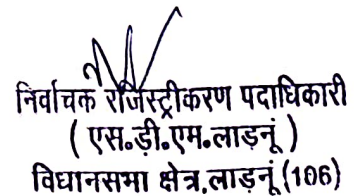 निर्वाचक रजिस्ट्रीकरण पदाधिकारी
( एस॰डी॰एम॰लाडनूं )
विधानसभा क्षेत्र,लाडनूं (106)